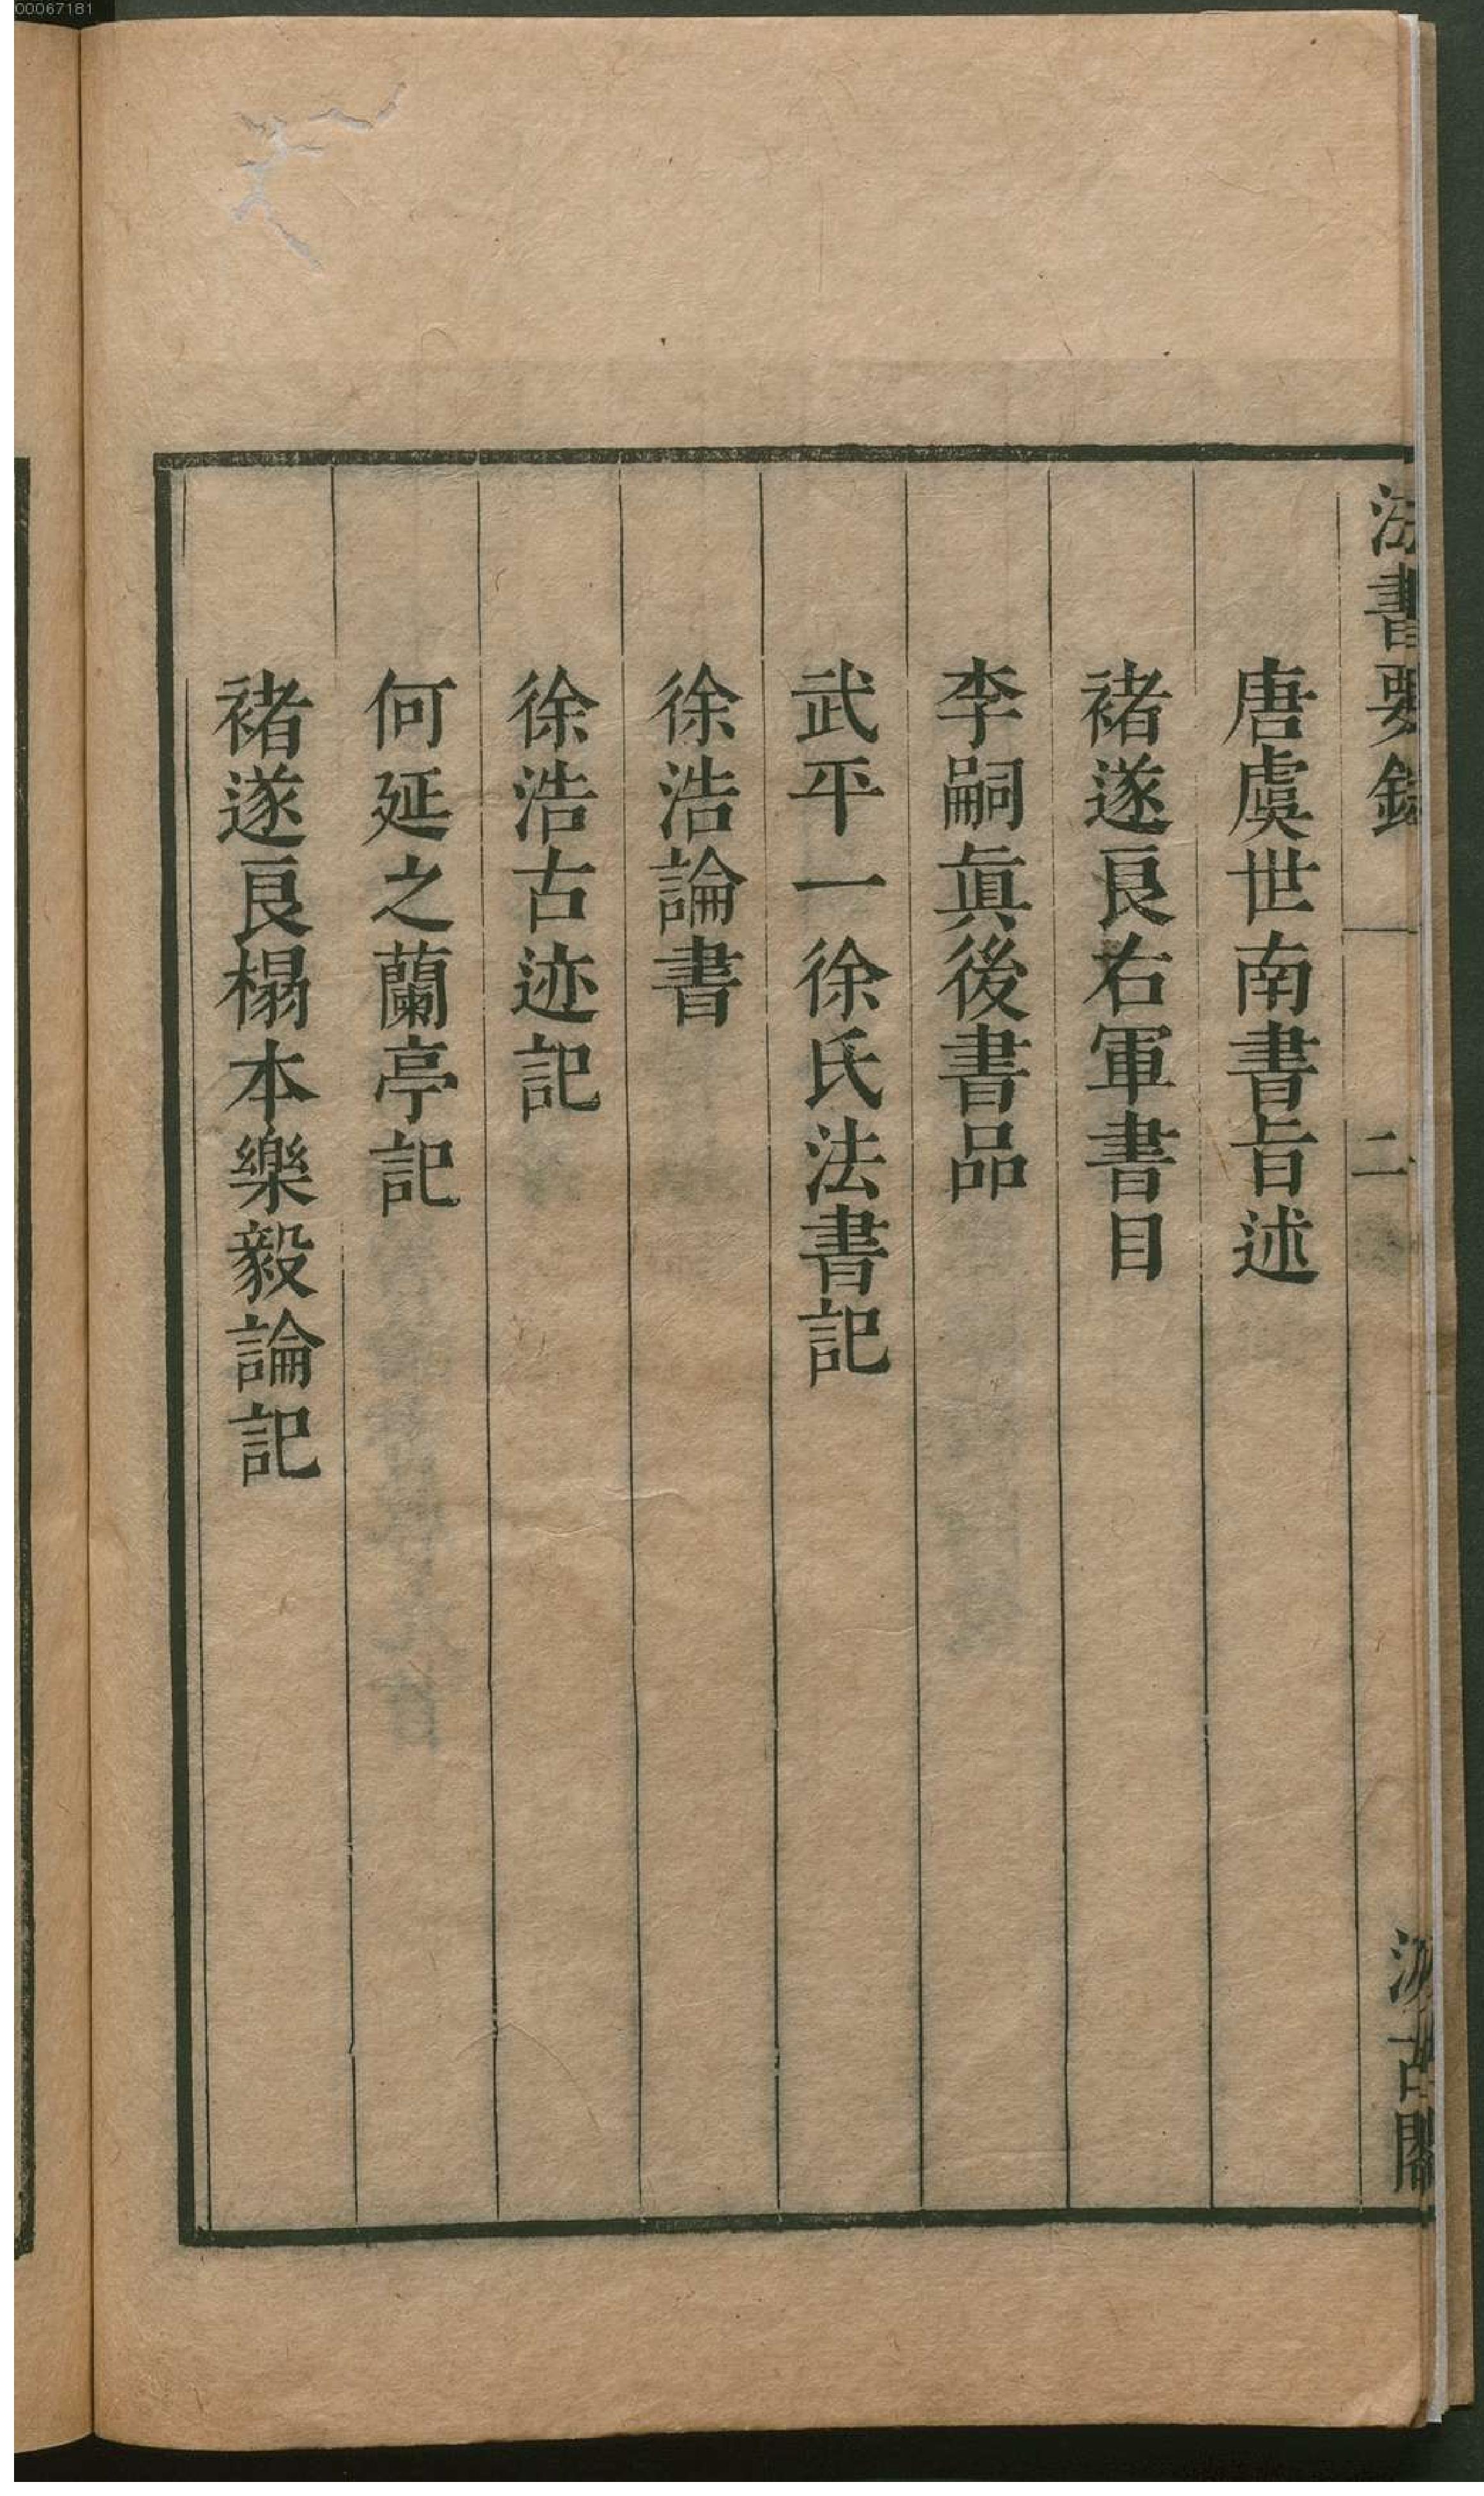 00067181
法書要錄
二
汲古閣
唐虞世南書旨述
褚遂良右軍書目
李嗣眞後書品
武平一徐氏法書記
徐浩論書
徐浩古迹記
何延之蘭亭記
褚遂良榻本樂毅論記